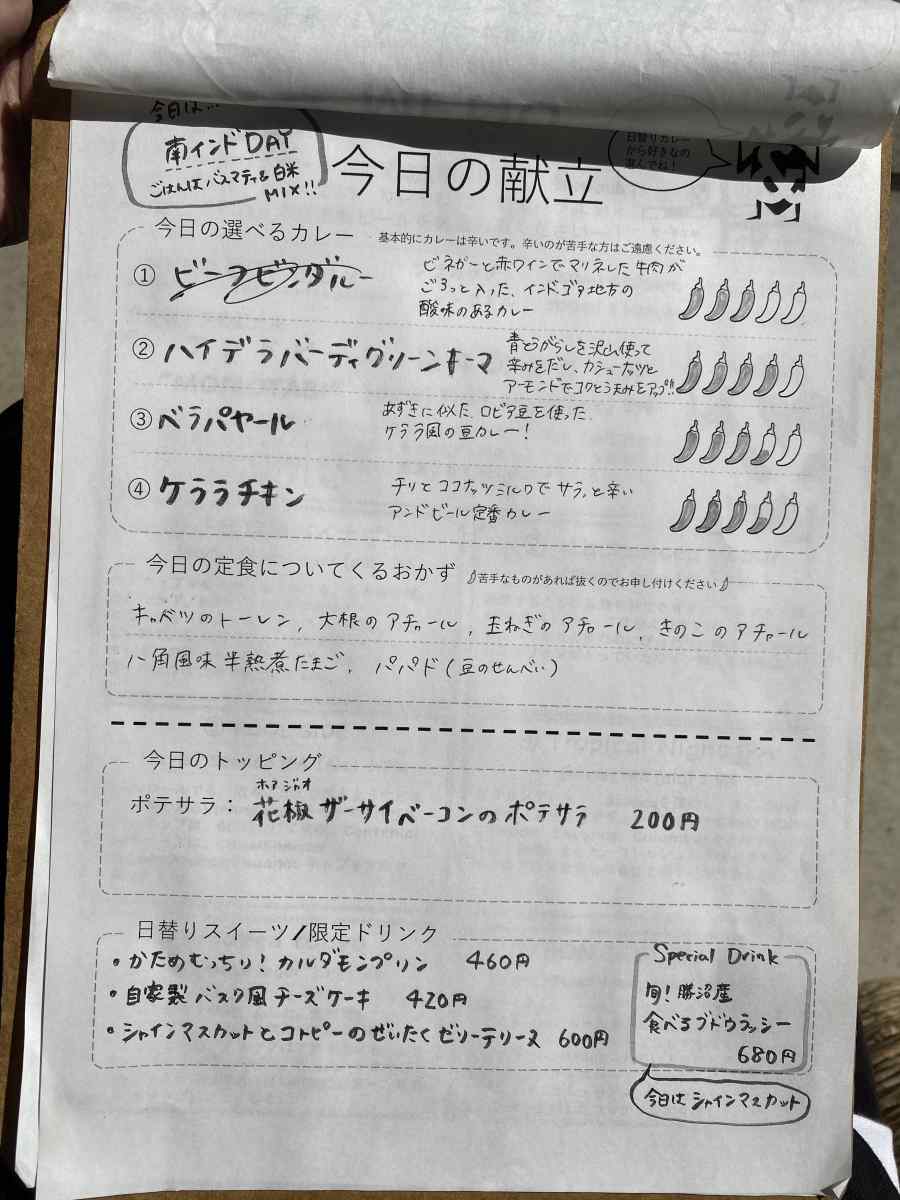 今日は…
南インドDAY
ごはんはバスマティ&白米
MIX!!
今日の献立
日替りカレー
から好きなの
選んでね!
今日の選べるカレー
基本的にカレーは辛いです。辛いのが苦手な方はご遠慮ください。
① ビーフビンダルー
ビネガーと赤ワインでマリネした牛肉が
ごろっと入った、インドゴア地方の
酸味のあるカレー
② ハイデラバーディグリーンキーマ
青とうがらしを沢山使って
辛みをだし、カシューナッツと
アーモンドでコクとうまみをアップ!!
③ ベラパヤール
あずきに似た、ロビア豆を使った
ケララ風の豆カレー!
④ ケララチキン
チリとココナッツミルクでサラッと辛い
アンドビール定番カレー
今日の定食についてくるおかず
苦手なものがあれば抜くのでお申し付けください
キャベツのトーレン, 大根のアチャール, 玉ねぎのアチャール, きのこのアチャール
八角風味半熟煮たまご, パパド(豆のせんべい)
今日のトッピング
ホアジャオ
ポテサラ: 花椒ザーサイベーコンのポテサラ 200円
日替りスイーツ/限定ドリンク
・かためむっちり!カルダモンプリン 460円
・自家製バスク風チーズケーキ 420円
・シャインマスカットとコトピーのぜいたくゼリーテリーヌ 600円
Special Drink
旬!勝沼産
食べるブドウラッシー
680円
今日はシャインマスカット